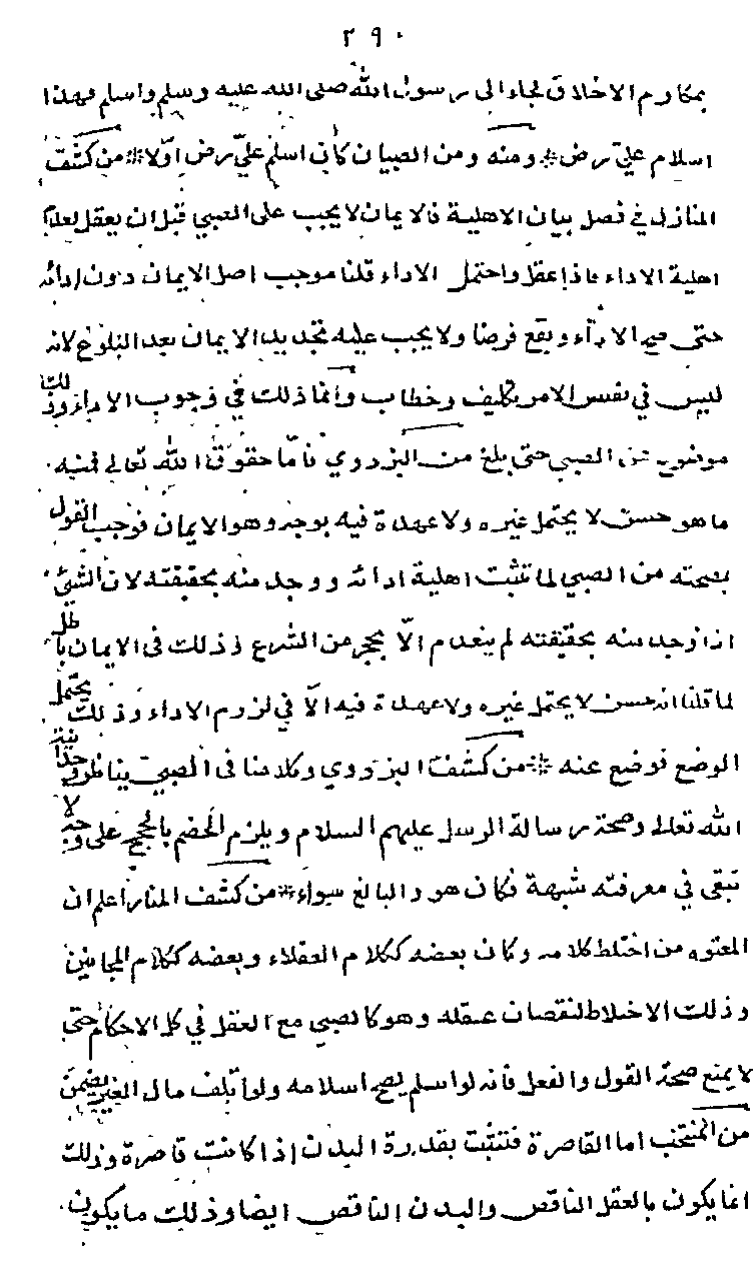 ٢٩٠
بمكارم الاخلاق فجاء الى رسول الله صلى الله عليه وسلم واسلم فهذا
اسلام علي رض ومنه ومن الصبيان كان اسلم علي رض اوّلا من كشف
المنازل في فصل بيان الاهلية فالايمان لا يجب على الصبي قبل ان يعقل لعدم
اهلية الاداء فاذا عقل واحتمل الاداء قلنا موجب اصل الايمان دون ادائه
حتى صح الاداء ويقع فرضا ولا يجب عليه تجديد الايمان بعد البلوغ لانه
ليس في نفس الامر تكليف وخطاب وانما ذلك في وجوب الاداء وذلك
موضوع عن الصبي حتى بلغ من البزدوي فامّا حقوق الله تعالى فمنه
ما هو حسن لا يحتمل غيره ولا عهدة فيه بوجه وهو الايمان فوجب القول
بصحته من الصبي لما تثبت اهلية ادائه ووجد منه بحقيقته لان الشئ
اذا وجد منه بحقيقته لم ينعدم الّا بحجر من الشرع وذلك في الايمان باطل
لما قلنا انه حسن لا يحتمل غيره ولا عهدة فيه الّا في لزوم الاداء وذلك يحتمل
الوضع فوضع عنه من كشف البزدوي وكلامنا في الصبي يناظر وحدانية
الله تعالى وصحة رسالة الرسل عليهم السلام ويلزم الخصم بالحجج على وجه لا
تبقى في معرفته شبهة فكان هو والبالغ سواء من كشف المنار اعلم ان
المعتوه من اختلط كلامه وكان بعضه ككلام العقلاء وبعضه ككلام المجانين
وذلك الاختلاط لنقصان عقله وهو كالصبي مع العقل في كل الاحكام حتى
لا يمنع صحة القول والفعل فانه لو اسلم يصح اسلامه ولو اتلف مال الغير يضمن
من المنتخب اما القاصرة فتثبت بقدرة البدن اذا كانت قاصرة وذلك
انما يكون بالعقل الناقص والبدن الناقص ايضا وذلك ما يكون